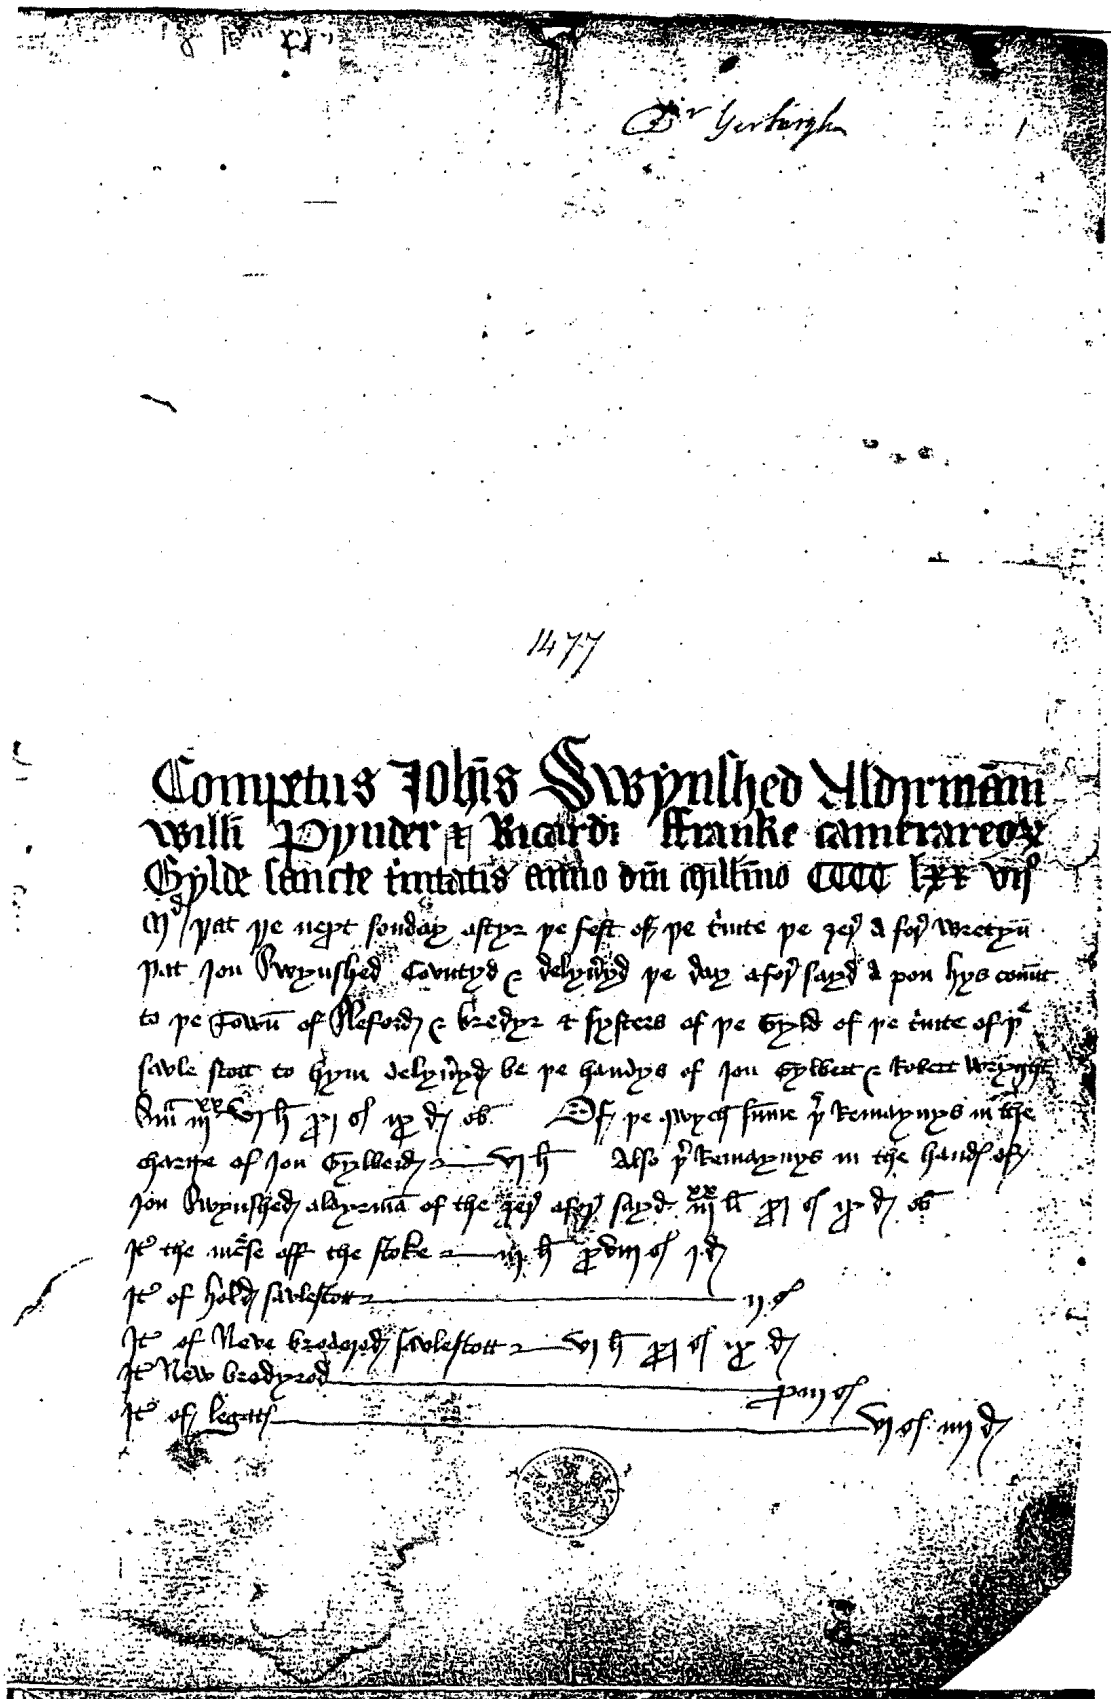 Dr Yerburgh
1
1477
Compotus Johis Swynshed Aldirmani
Willi Pynder & Ricardi ffranke camerareorꝝ
Gylde sancte tinitatis anno dni millino CCCC lxx vij
Md þat þe next sonday aftyr þe fest off þe tinite þe ȝer a for wretyn
þat Jon Swynshed Covntyd & delyvyd þe day afor sayd a pon hys comt
to þe Town of Sleford & bredyr & systers of þe Gyld of þe tinite of þe
savle scott to hym delyvyd be þe handys of Jon Gylbert & Robert Wryght
Sum iiijxx vj li xj s ix d ob Off þe qwych sume þer Remaynys in the
charge of Jon Gylberd vj li Also þer Remaynys in the hands off
Jon Swynshed aldyrma of the ȝer afor sayd iiijxx li xj s ix d ob
It the increse off the stoke iij li xviij s j d
It of hold savlescott ij s
It of Neve brederod savlescott vj li xj s ix d
It New bredyrod xiij s
It off legatts vj s iiij d